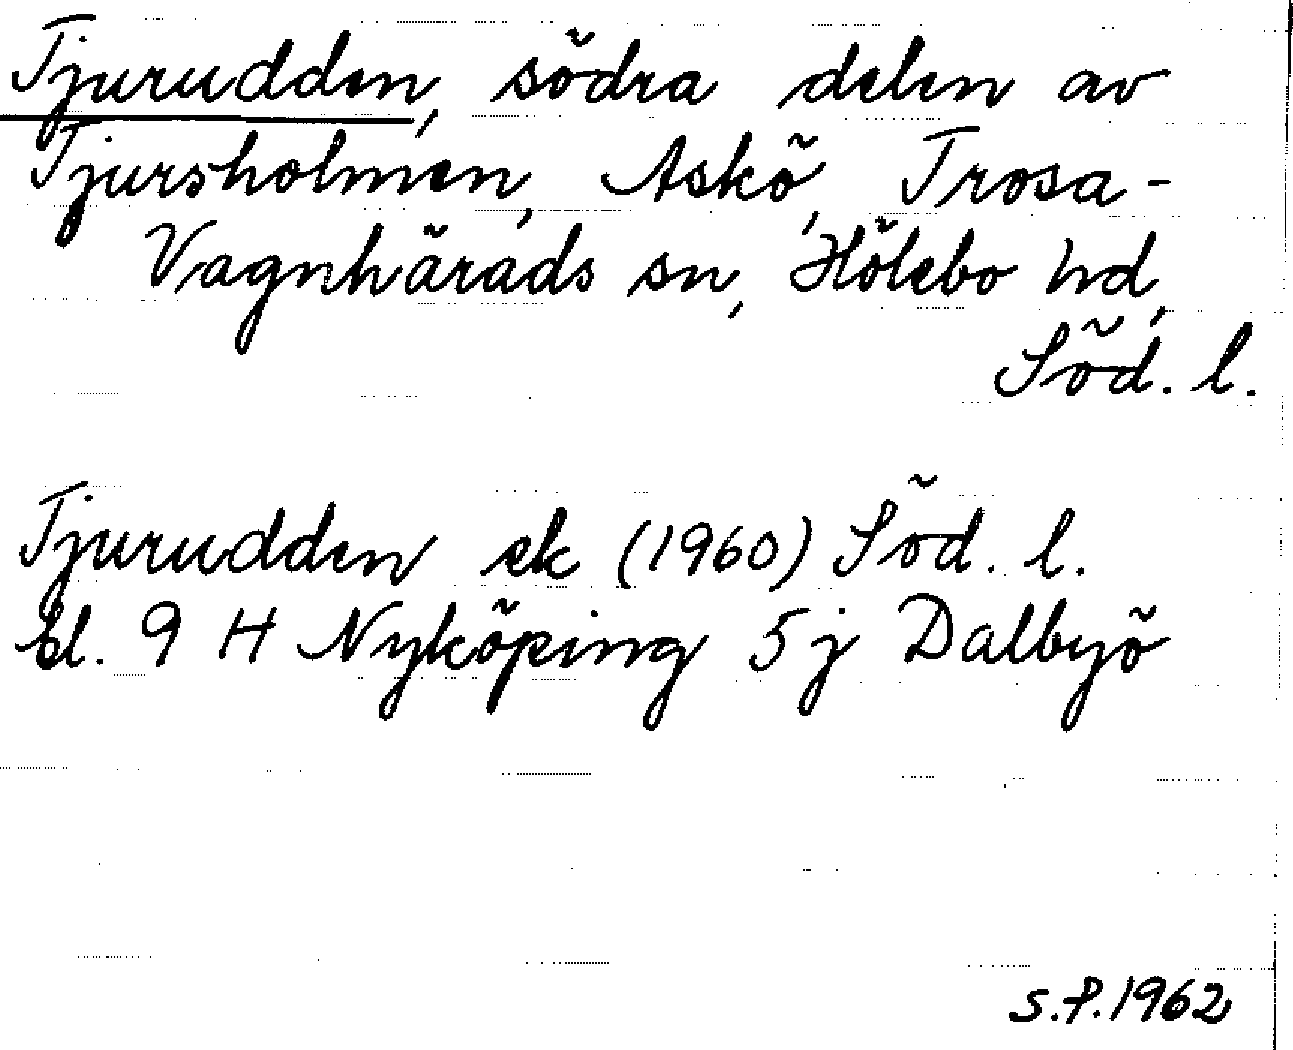 Tjurudden, södra delen av
Tjursholmen, Askö, Trosa-
Vagnhärads sn, Hölebo hd,
Söd. l.
Tjurudden ek (1960) Söd. l.
bl. 9 H Nyköping 5j Dalbyö
S.P. 1962